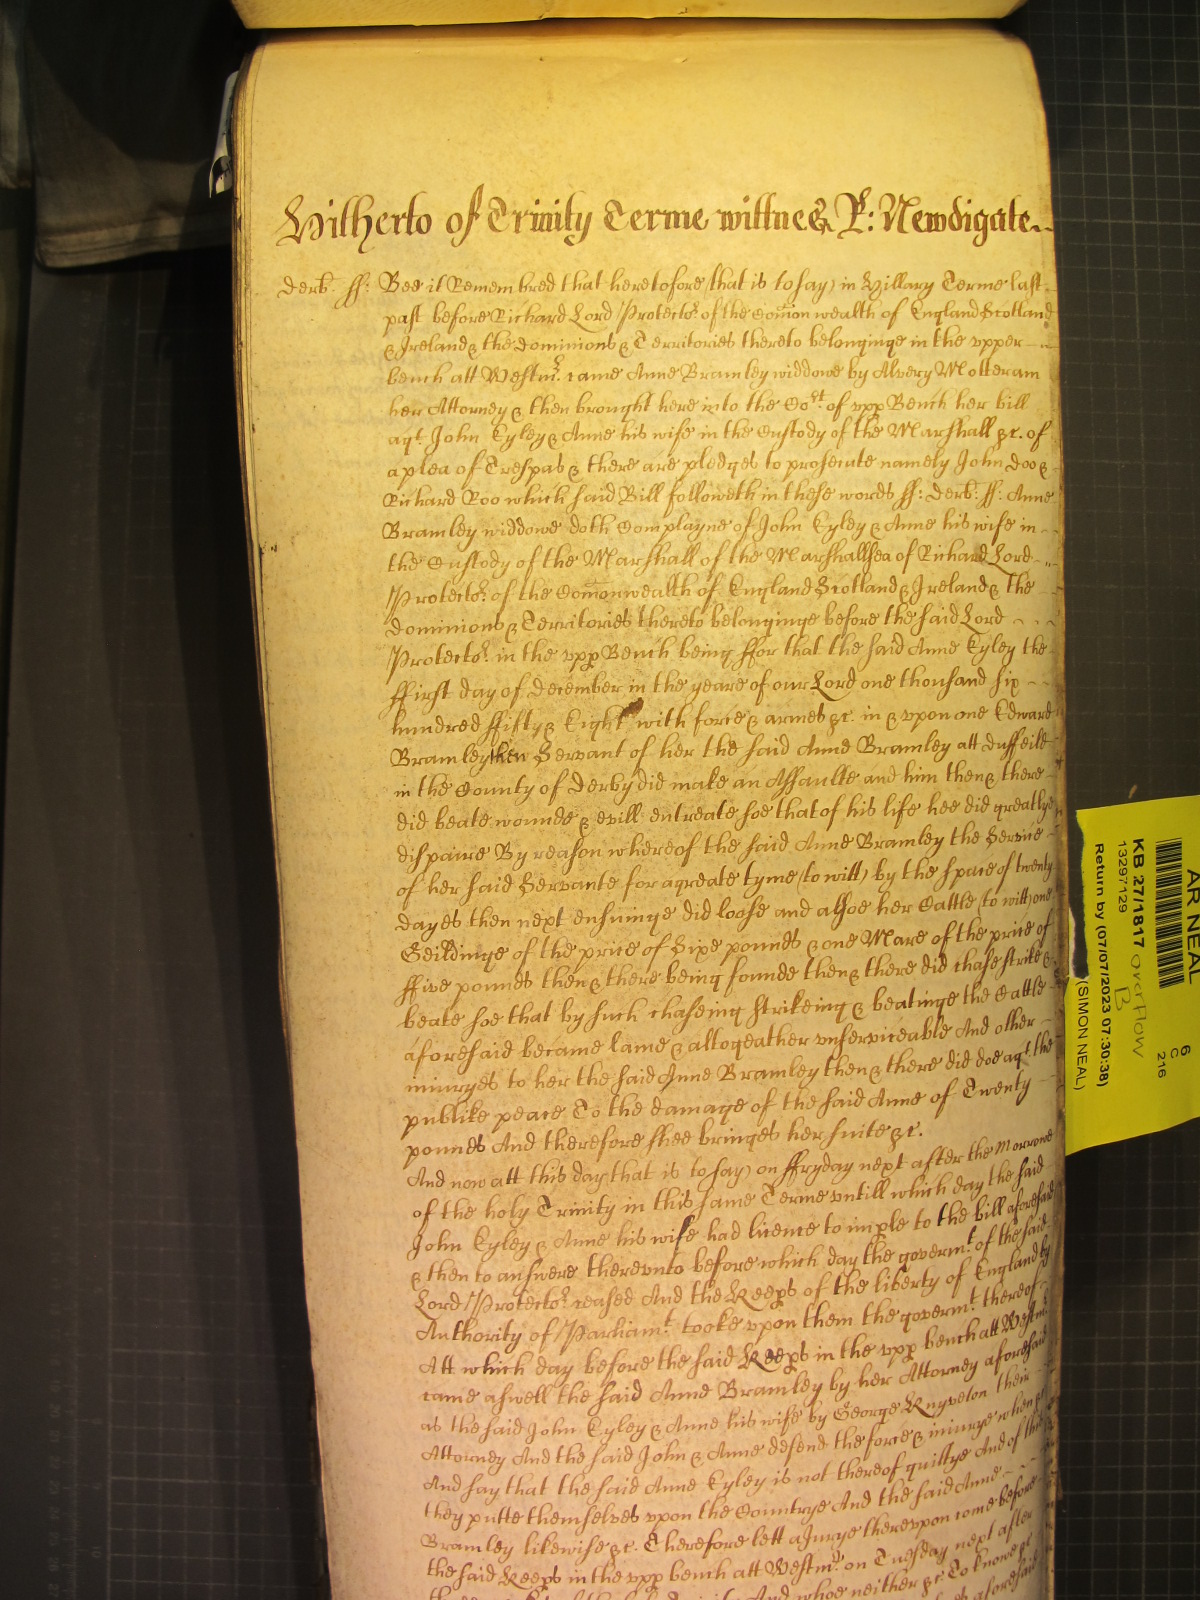 Hitherto of Trinity Terme wittnes R: Newdigate
Derb: ss: Bee it Remembred that heretofore (that is to say) in Hillary Terme last
past before Richard Lord Protector of the Comonwealth of England Scotland
& Ireland & the Dominions & Territories thereto belonginge in the upper
bench att Westmr came Anne Bramley widdowe by Alvery Motteram
her Attorney & then brought here into the Cort of upp Bench her bill
agt John Eyley & Anne his wife in the Custody of the Marshall &c. of
a plea of Trespas & there are pledges to prosecute namely John Doo &
Richard Roo which said Bill followeth in these words ss: Derb: ss: Anne
Bramley widdowe doth Complayne of John Eyley & Anne his wife in
the Custody of the Marshall of the Marshallsea of Richard Lord
Protector of the Comonwealth of England Scotland & Ireland & the
Dominions & Territories thereto belonginge before the said Lord
Protector in the upp Bench being ffor that the said Anne Eyley the
ffirst day of December in the yeare of our Lord one thousand six
hundred ffifty & Eight with force & armes &c. in & upon one Edward
Bramley then Servant of her the said Anne Bramley att Duffeild
in the County of Derby did make an Assaulte and him then & there
did beate wounde & evill entreate soe that of his life hee did greatlye
dispaire By reason whereof the said Anne Bramley the Service
of her said Servante for a greate tyme (to witt) by the space of twenty
dayes then next ensuinge did loose and alsoe her Cattle (to witt) one
Geildinge of the price of Sixe pounds & one Mare of the price of
ffive pounds then & there being founde then & there did chase strike &
beate soe that by such chaseing strikeing & beatinge the Cattle
aforesaid became lame & altogeather unserviceable And other
iniuryes to her the said Anne Bramley then & there did doe agt the
publike peace To the damage of the said Anne of Twenty
pounds And therefore shee bringes her suite &c.
And now att this day that is to say) on ffryday next after the Morrowe
of the holy Trinity in this same Terme untill which day the said
John Eyley & Anne his wife had licence to imple to the bill aforesaid
& then to answere thereunto before which day the govermt of the said
Lord Protector ceased And the Keeps of the liberty of England by
Authority of Parliamt tooke upon them the govermt thereof
Att which day before the said Keeps in the upp bench att Westmr
came aswell the said Anne Bramley by her Attorney aforesaid
as the said John Eyley & Anne his wife by George Knyveton their
Attorney And the said John & Anne defend the force & iniurye when &c
And say that the said Anne Eyley is not thereof guiltye And of this
they putte themselves upon the Countrye And the said Anne
Bramley likewise &c. Therefore lett a Jurye thereupon come before
the said Keeps in the upp bench att Westmr on Tuesday next after
And whoe neither &c To knowe &c
aforesaid
AR NEAL
KB 27/1817 overflow
B
13297129
Return by (07/07/2023 07:30:38)
(SIMON NEAL)
6
C
216